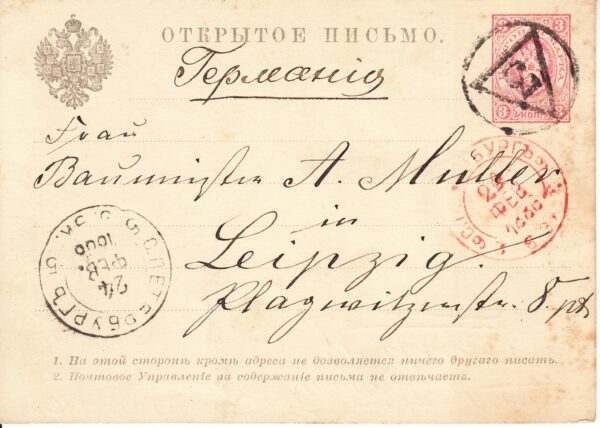 ОТКРЫТОЕ ПИСЬМО.
Германія
Frau
Baumeister A. Müller
in
Leipzig.
Plagwitzerstr. 8. pt
С.ПЕТЕРБУРГЪ
24
ФЕВ
1. На этой сторонѣ кромѣ адреса не дозволяется ничего другаго писать.
2. Почтовое Управленіе за содержаніе письма не отвѣчаетъ.